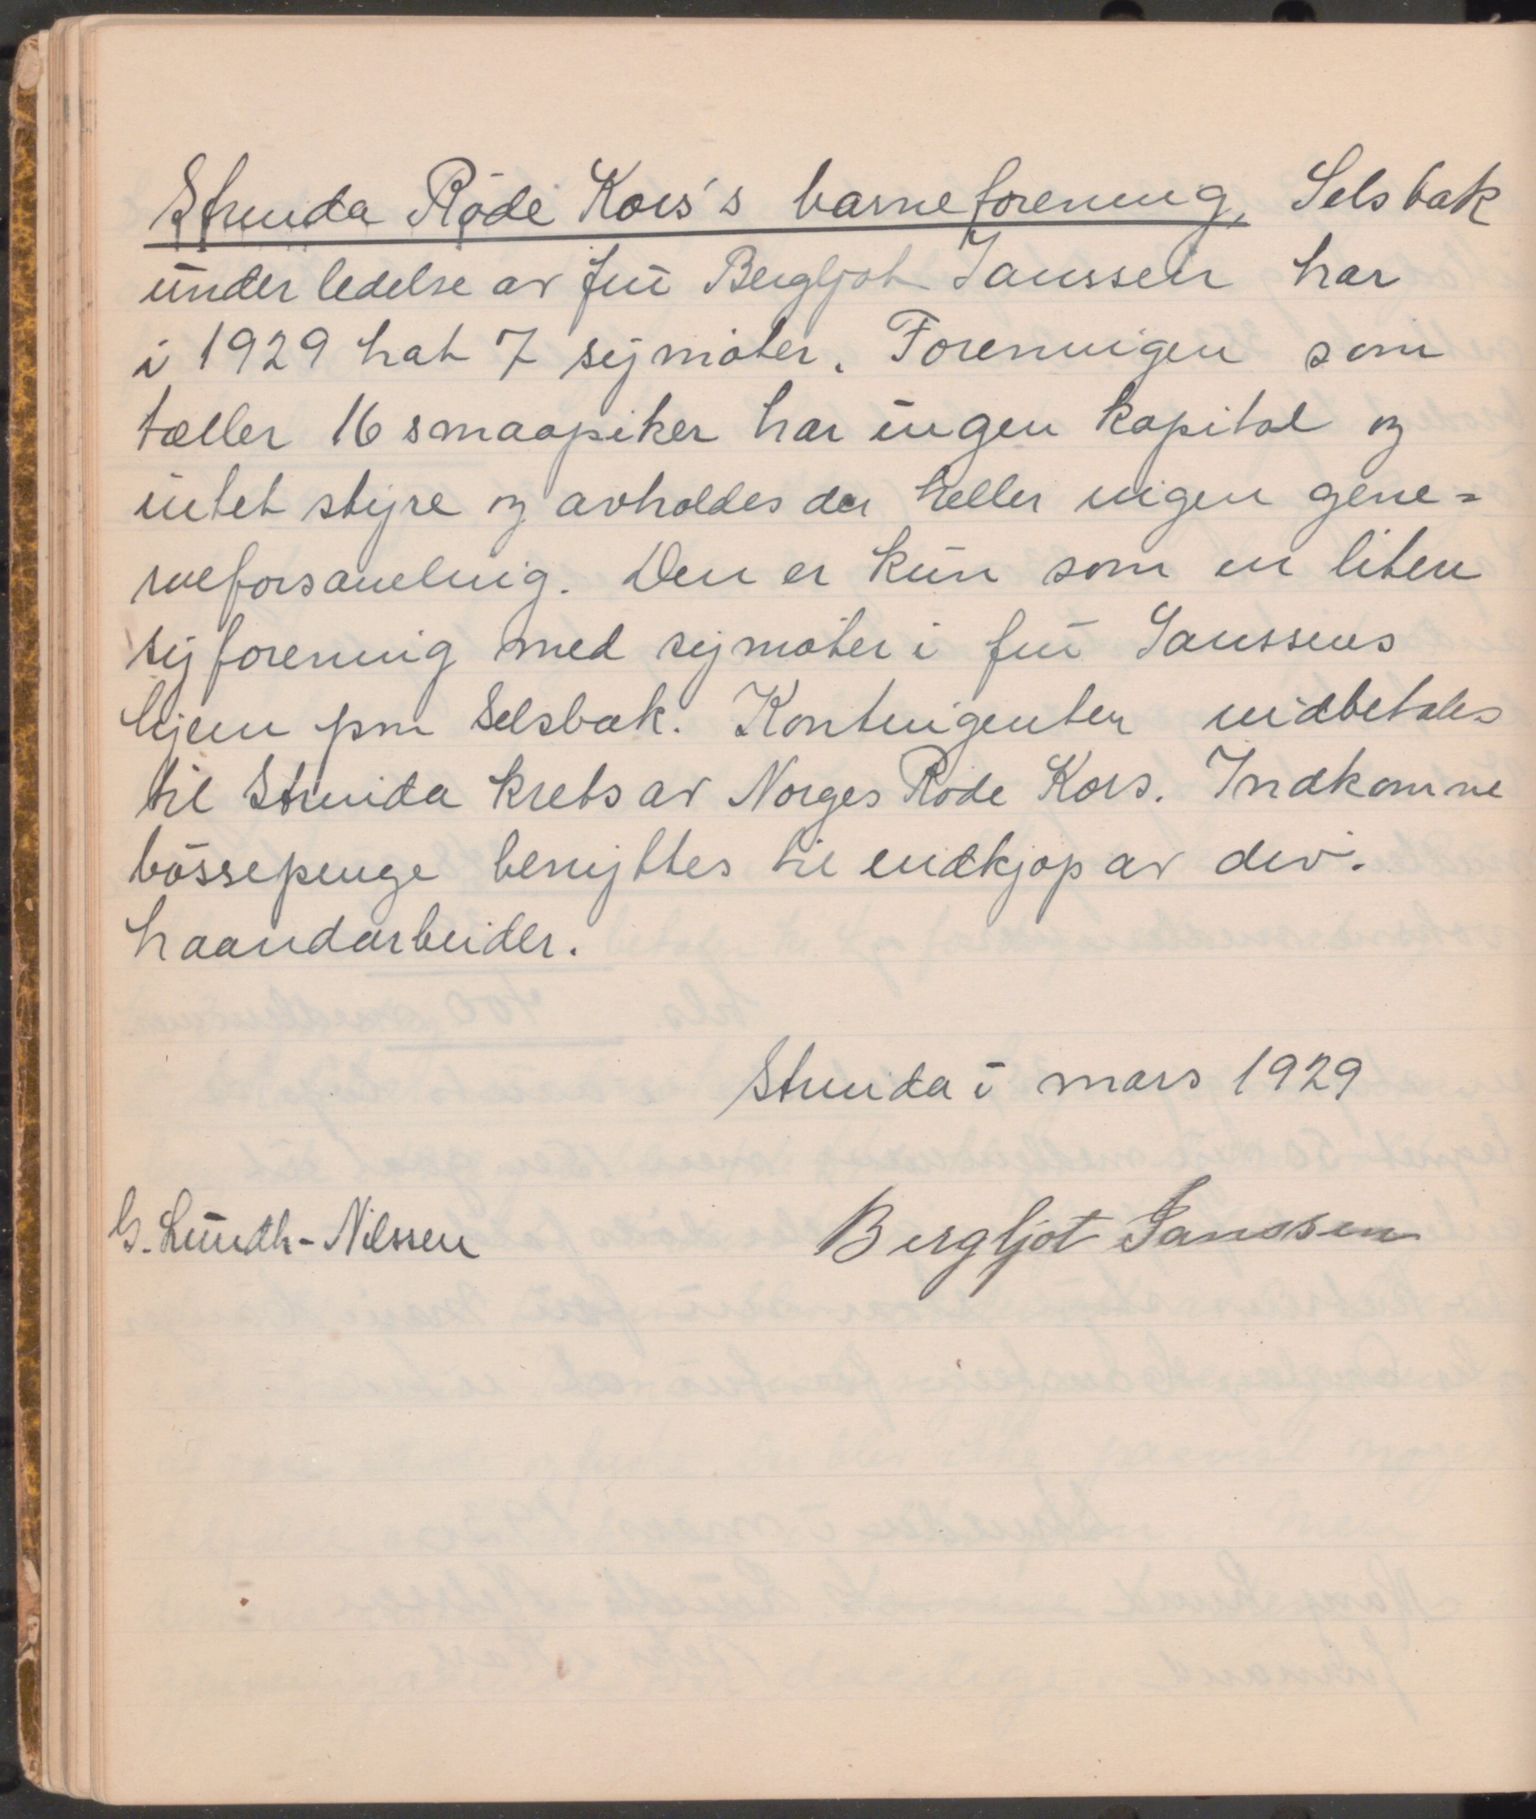 Strinda Røde Kors's barneforening, Selsbak
under ledelse av fru Bergljot Janssen har
i 1929 hat 7 symøter. Foreningen som
tæller 16 smaapiker har ingen kapital og
intet styre og avholdes der heller ingen gene=
ralforsamling. Den er kun som en liten
syforening med symøter i fru Janssens
hjem paa Selsbak. Kontingenten indbetales
til Strinda krets av Norges Røde Kors. Indkomne
bøssepenge benyttes til indkjøp av div.
haandarbeider.
Strinda i mars 1929
G. Lundh-Nilssen
Bergljot Janssen